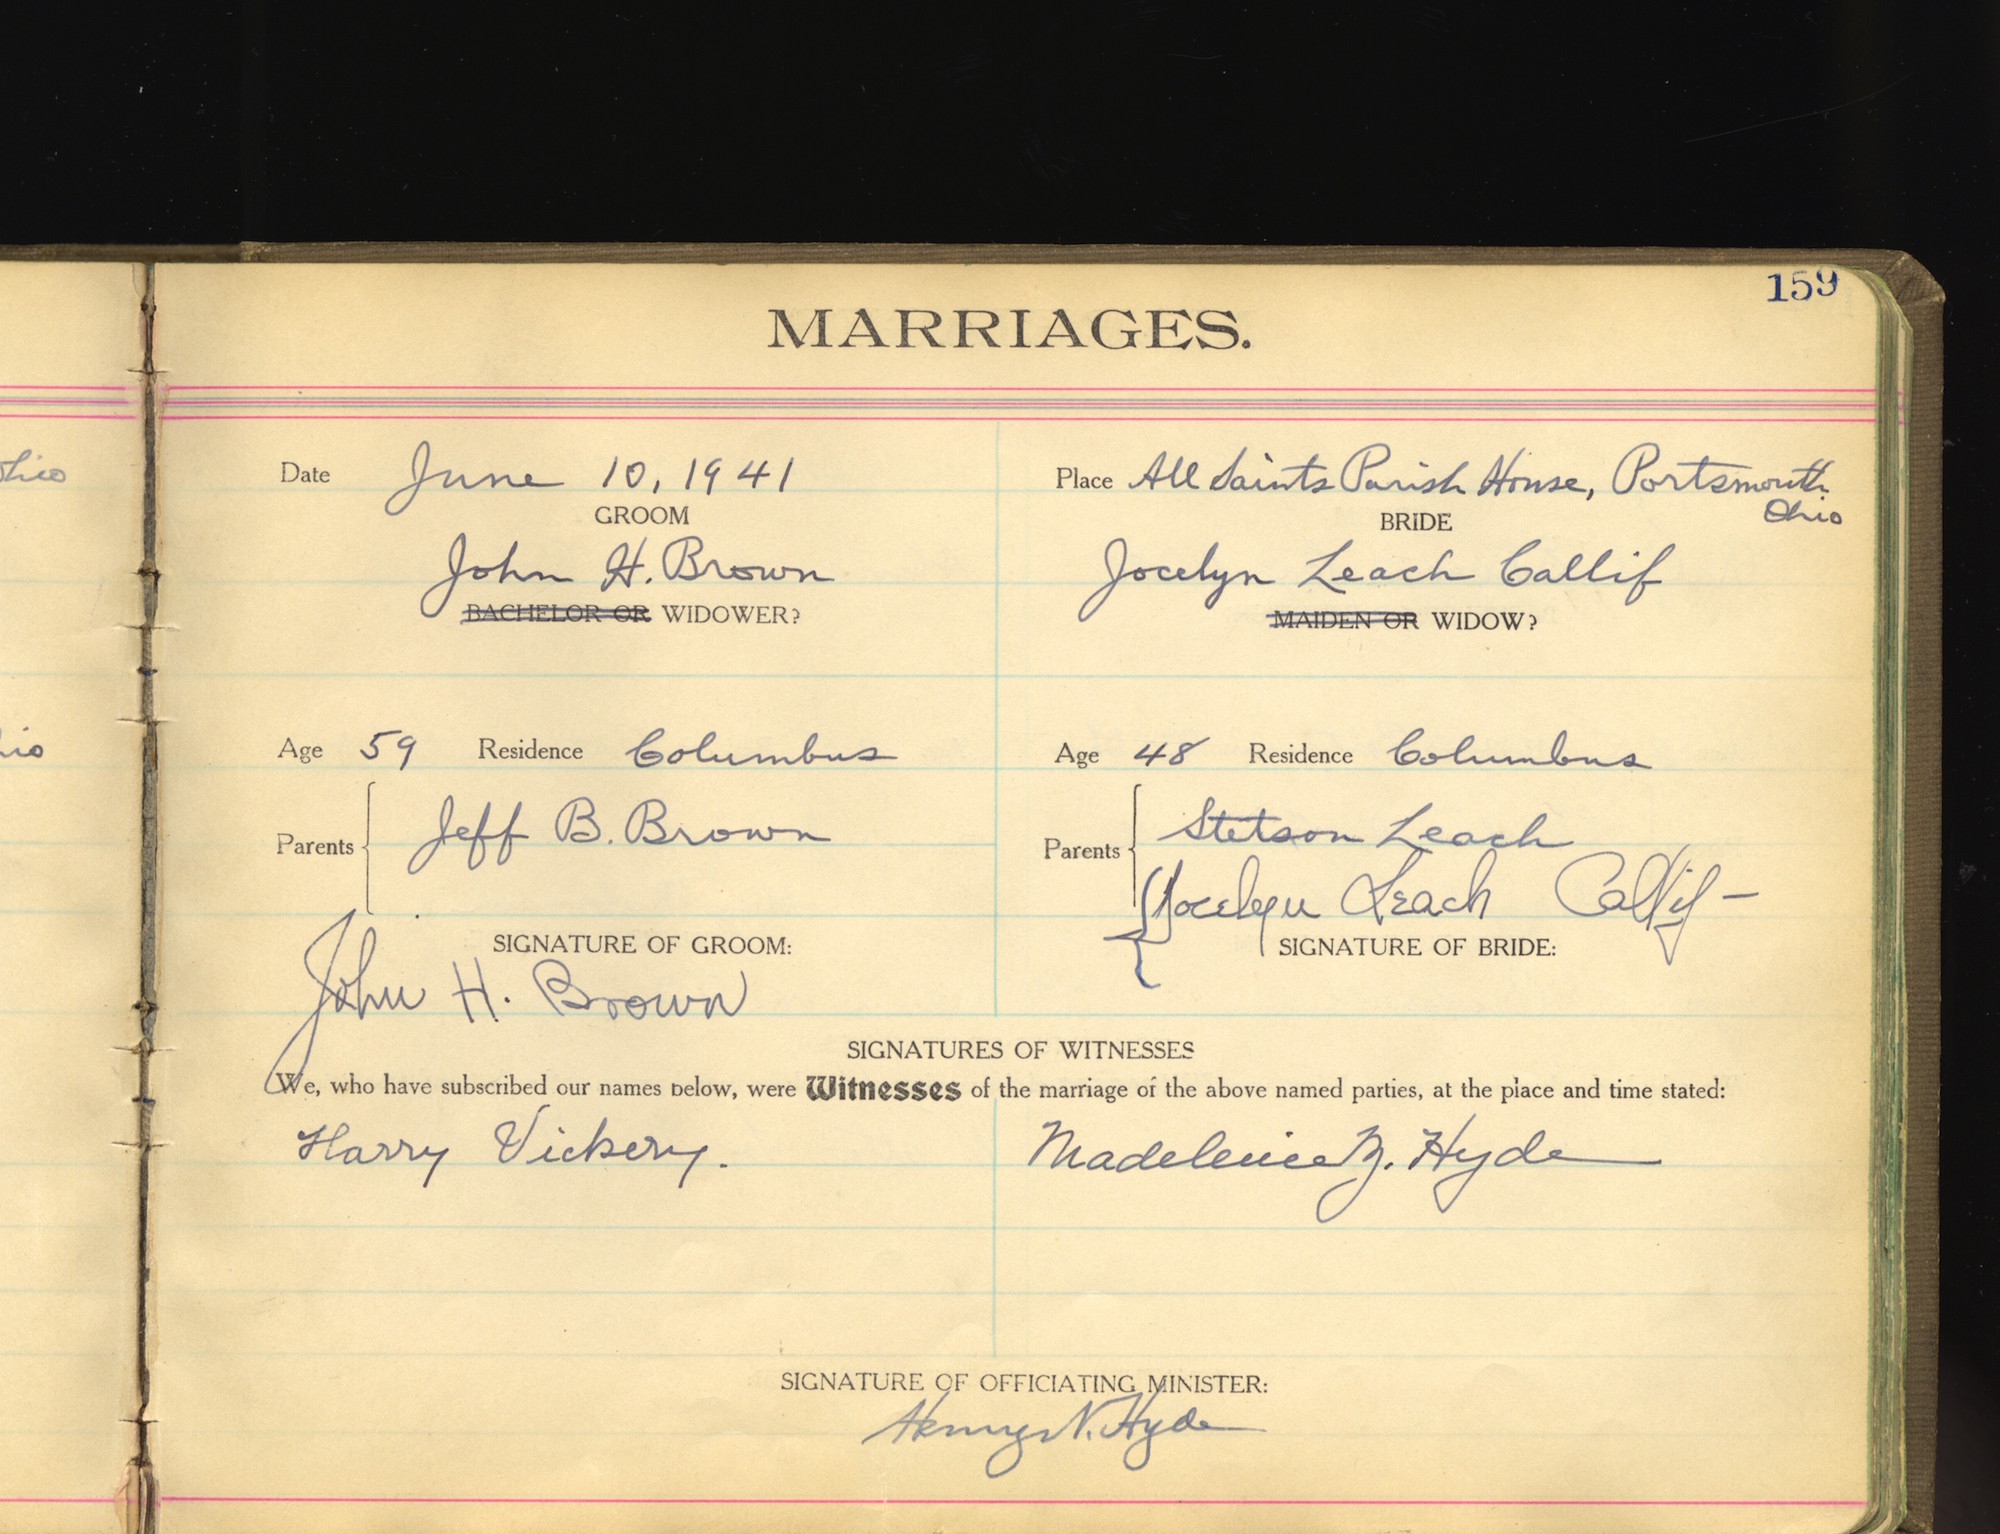 159
MARRIAGES.
Ohio
Date June 10, 1941
Place All Saints Parish House, Portsmouth
Ohio
GROOM
BRIDE
John H. Brown
Jocelyn Leach Callif
BACHELOR OR WIDOWER?
MAIDEN OR WIDOW?
hio
Age 59 Residence Columbus
Age 48 Residence Columbus
Parents Jeff B. Brown
Parents Stetson Leach
Jocelyn Leach Callif –
SIGNATURE OF GROOM:
SIGNATURE OF BRIDE:
John H. Brown
SIGNATURES OF WITNESSES
We, who have subscribed our names below, were Witnesses of the marriage of the above named parties, at the place and time stated:
Harry Vickery.
Madeleine Z. Hyde
SIGNATURE OF OFFICIATING MINISTER:
Henry N. Hyde